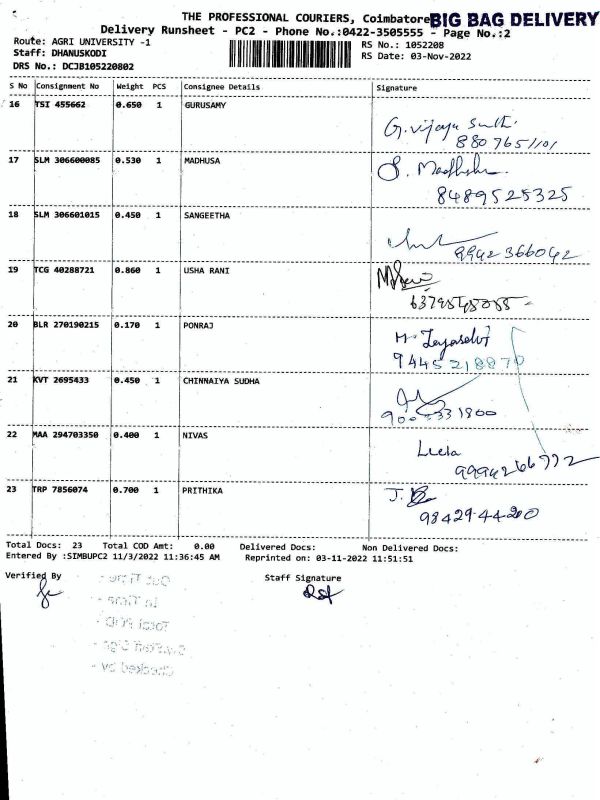 THE PROFESSIONAL COURIERS, Coimbatore BIG BAG DELIVERY
Delivery Runsheet - PC2 - Phone No.:0422-3505555 - Page No.:2
Route: AGRI UNIVERSITY -1 RS No.: 1052208
Staff: DHANUSKODI RS Date: 03-Nov-2022
DRS No.: DCJB105220802
S No Consignment No Weight PCS Consignee Details Signature
16 TSI 455662 0.650 1 GURUSAMY
8807651101
17 SLM 306600085 0.530 1 MADHUSA
8489525325
18 SLM 306601015 0.450 1 SANGEETHA
9942366042
19 TCG 40288721 0.860 1 USHA RANI
20 BLR 270190215 0.170 1 PONRAJ
9445218870
21 KVT 2695433 0.450 1 CHINNAIYA SUDHA
22 MAA 294703350 0.400 1 NIVAS
Leela
23 TRP 7856074 0.700 1 PRITHIKA
98429-44200
Total Docs: 23 Total COD Amt: 0.00 Delivered Docs: Non Delivered Docs:
Entered By :SIMBUPC2 11/3/2022 11:36:45 AM Reprinted on: 03-11-2022 11:51:51
Verified By Staff Signature
Out Time -
In Time -
Total POD -
Checked by -